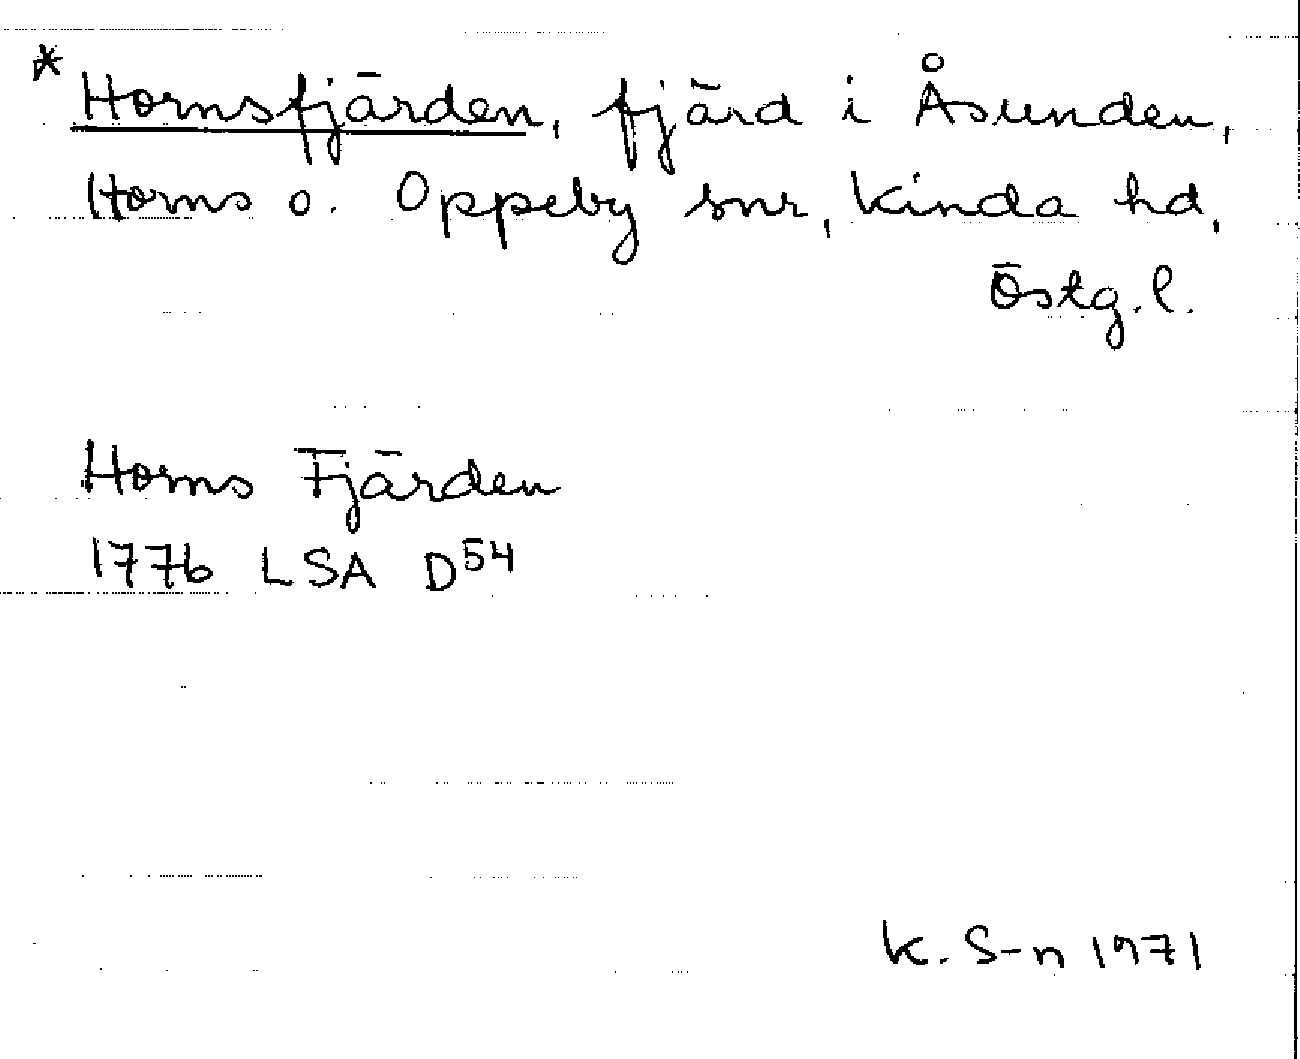 * Hornsfjärden, fjärd i Åsunden,
Horns o. Oppeby snr, Kinda hd,
Östg. l.
Horns Fjärden
1776 LSA D54
K. S-n 1971